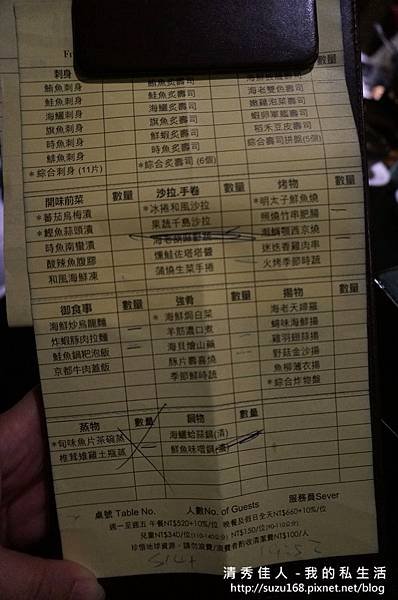 Fr
刺身
鮪魚刺身
鮭魚刺身
海鱺刺身
旗魚刺身
時魚刺身
鮮魚刺身
*綜合刺身 (11片)
鮪魚炙壽司
鮭魚炙壽司
海鱺炙壽司
旗魚炙壽司
鮮蝦炙壽司
時魚炙壽司
*綜合炙壽司 (6個)
數量
海老雙色壽司
嫩雞泡菜壽司
蝦卵軍艦壽司
稻禾豆皮壽司
綜合壽司拼盤(5個)
開味前菜 數量
*蕃茄烏梅漬
*鰹魚蒜頭漬
時魚南蠻漬
酸辣魚腹膠
和風海鮮凍
沙拉.手卷 數量
*冰捲和風沙拉
果蔬千島沙拉
燻鮭佐塔塔醬
蒲燒生菜手捲
烤物 數量
*明太子鮮魚燒
照燒竹串肥腸
海鱺顎西京燒
迷迭香雞肉串
*火烤季節時蔬
御食事 數量
海鮮炒烏龍麵
炸蝦豚肉拉麵
鮭魚鍋粑泡飯
京都牛肉蓋飯
強肴 數量
*海鮮焗白菜
羊筋濃口煮
海貝燴山藥
豚片壽喜燒
季節鮮時蔬
揚物 數量
海老天婦羅
蚵味海鮮揚
雞羽翅蒜揚
野菇金沙揚
魚柳薄衣揚
*綜合炸物盤
蒸物 數量
*旬味魚片茶碗蒸
椎茸雉雞土瓶蒸
鍋物 數量
海鱺蛤蒜鍋(清)
鮮魚味噌鍋
桌號 Table No. 人數No. of Guests 服務員Sever
週一至週五 午餐NT$520+10%/位 晚餐及假日全天NT$660+10%/位
兒童NT$340/位(110-140公分) NT$150/位(90-110公分)
珍惜地球資源，請勿浪費/浪費者酌收清潔費NT$100/人
清秀佳人 -我的私生活
http://suzu168.pixnet.net/blog